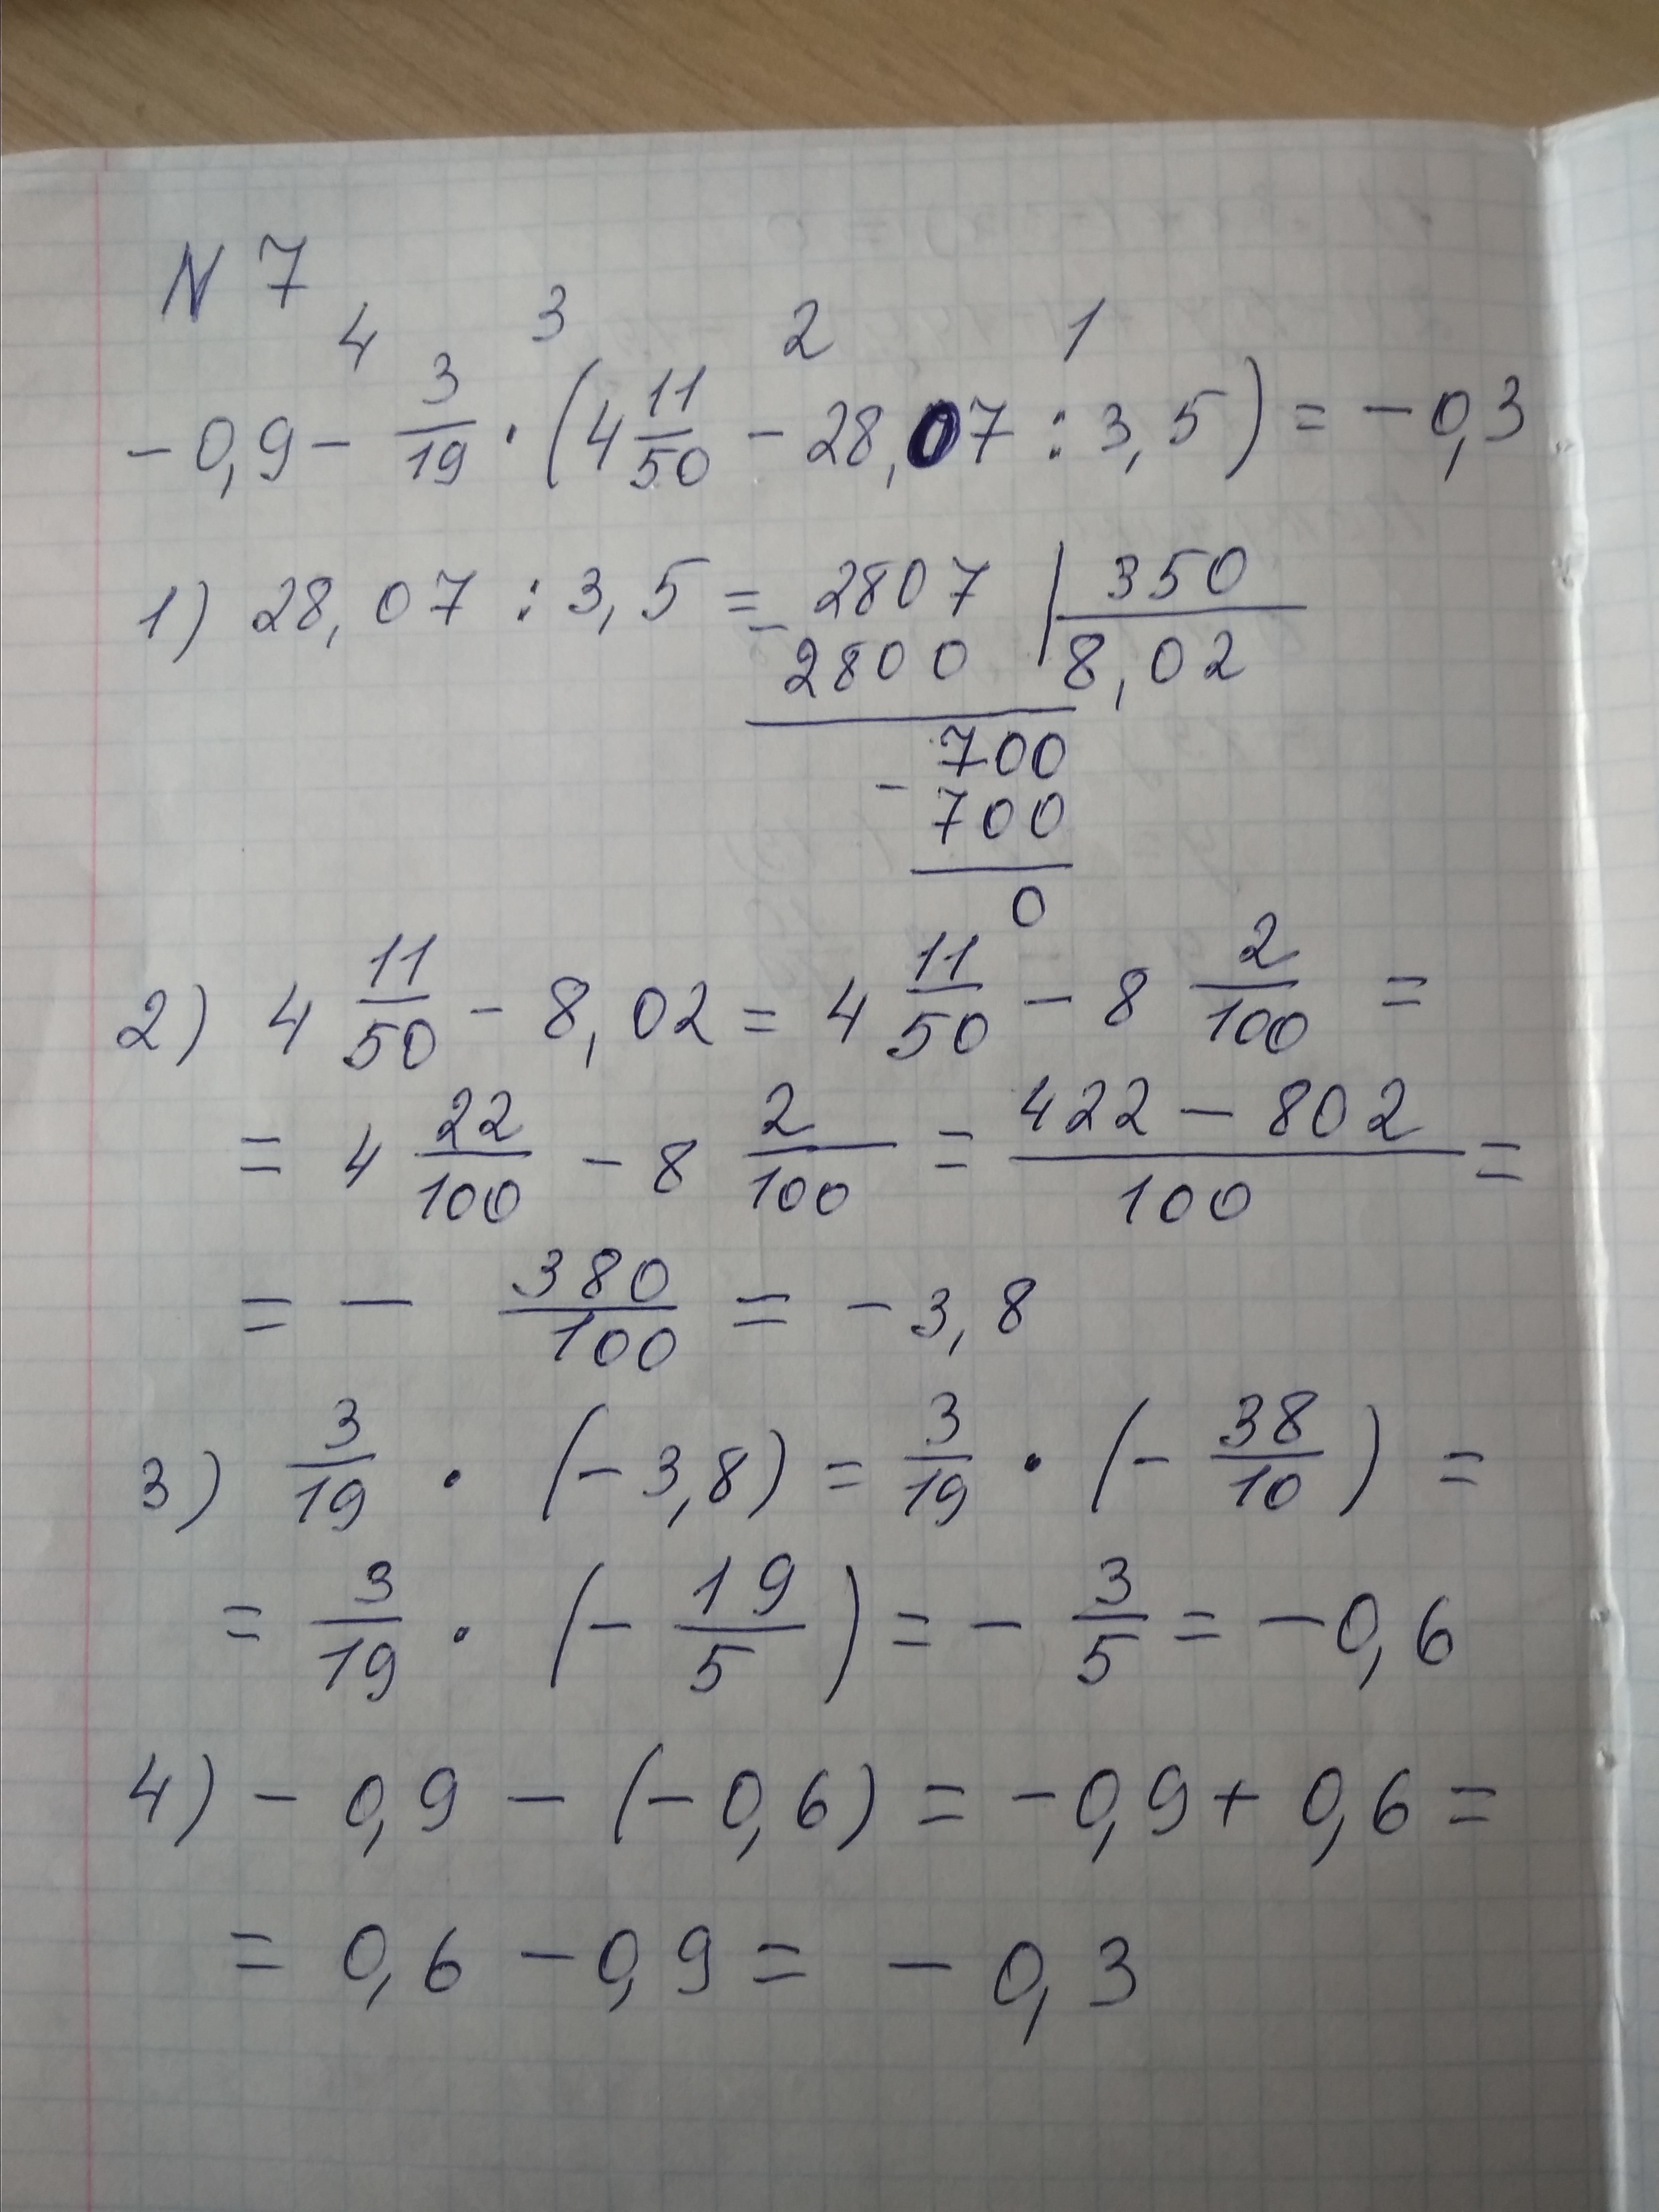 N 7
4 3 2 1
-0,9 - 3/19 · (4 11/50 - 28,07 : 3,5) = -0,3
1) 28,07 : 3,5 = 2807 | 350
- 2800 | 8,02
700
- 700
0
2) 4 11/50 - 8,02 = 4 11/50 - 8 2/100 =
= 4 22/100 - 8 2/100 = 422 - 802/100 =
= - 380/100 = -3,8
3) 3/19 · (-3,8) = 3/19 · (- 38/10) =
= 3/19 · (- 19/5) = - 3/5 = -0,6
4) - 0,9 - (-0,6) = -0,9 + 0,6 =
= 0,6 - 0,9 = - 0,3